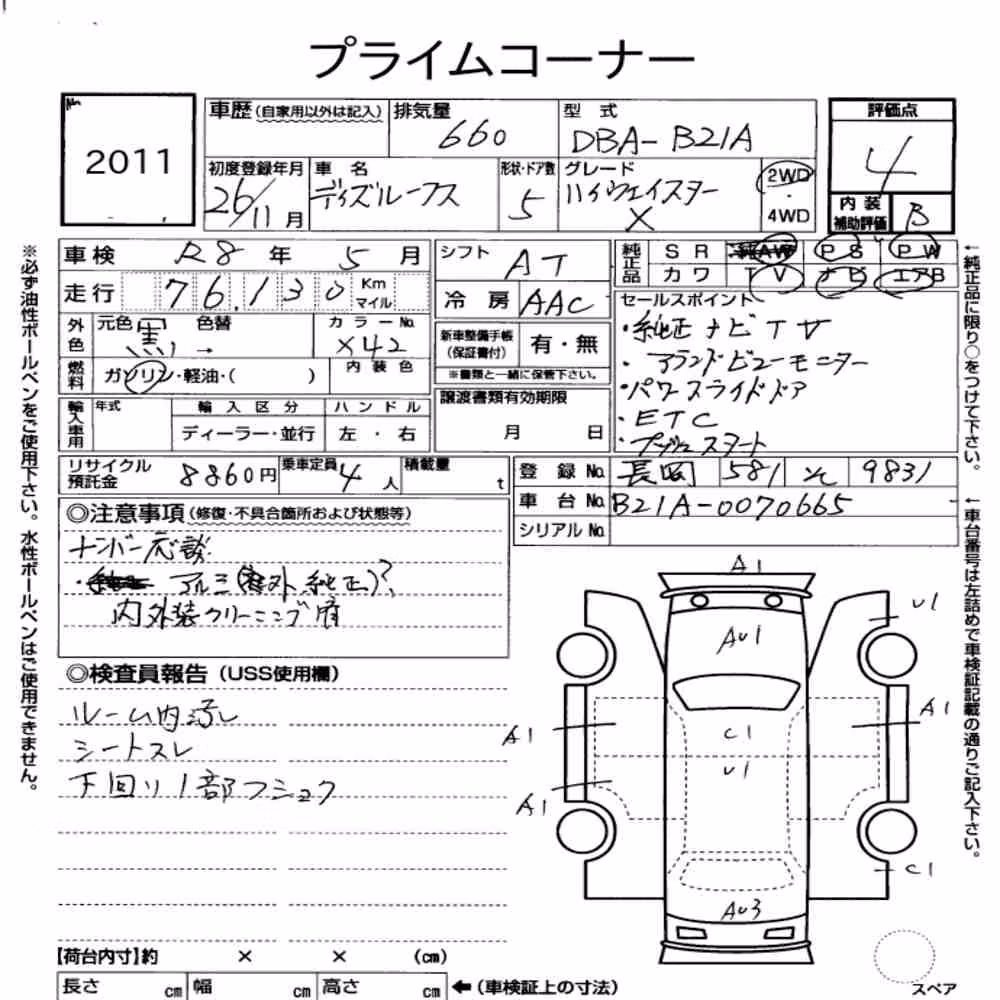 プライムコーナー
No.
2011
車歴 (自家用以外は記入)
排気量
660
型 式
DBA-B21A
評価点
4
初度登録年月
26/11月
車 名
デイズルークス
形状・ドア数
5
グレード
ハイウェイスター
X
2WD
・
4WD
内 装
補助評価
B
車検 R8年 5月
走行 76,130 Km
マイル
外色
元色 黒
色替 →
カラーNo.
X42
燃料
ガソリン・軽油・( )
内 装 色
輸入車用
年式
輸 入 区 分
ハ ン ド ル
ディーラー・並行
左 ・ 右
シフト
AT
冷 房
AAC
新車整備手帳
(保証書付)
有・無
※書類と一緒に保管下さい。
譲渡書類有効期限
月 日
純正品
S R AW P S P W
カ ワ T V ナ ビ エアB
セールスポイント
・純正ナビTV
・アラウンドビューモニター
・パワースライドドア
・ETC
・プッシュスタート
リサイクル
預託金
8860円
乗車定員
4人
積載量
t
登 録 No.
長岡 581 そ 9831
車 台 No.
B21A-0070665
シリアルNo.
◎注意事項 (修復・不具合箇所および状態等)
ナンバー応談
・アルミ(社外 純正)?
内外装クリーニング府
◎検査員報告 (USS使用欄)
ルーム内汚レ
シートスレ
下回リ1部フショク
A1
U1
AU1
A1
A1
C1
U1
A1
C1
AU3
【荷台内寸】約 × × (cm)
長さ cm
幅 cm
高さ cm
←(車検証上の寸法)
スペア
※必ず油性ボールペンをご使用下さい。水性ボールペンはご使用できません。
←純正品に限り○をつけて下さい。
←車台番号は左詰めで車検証記載の通りご記入下さい。